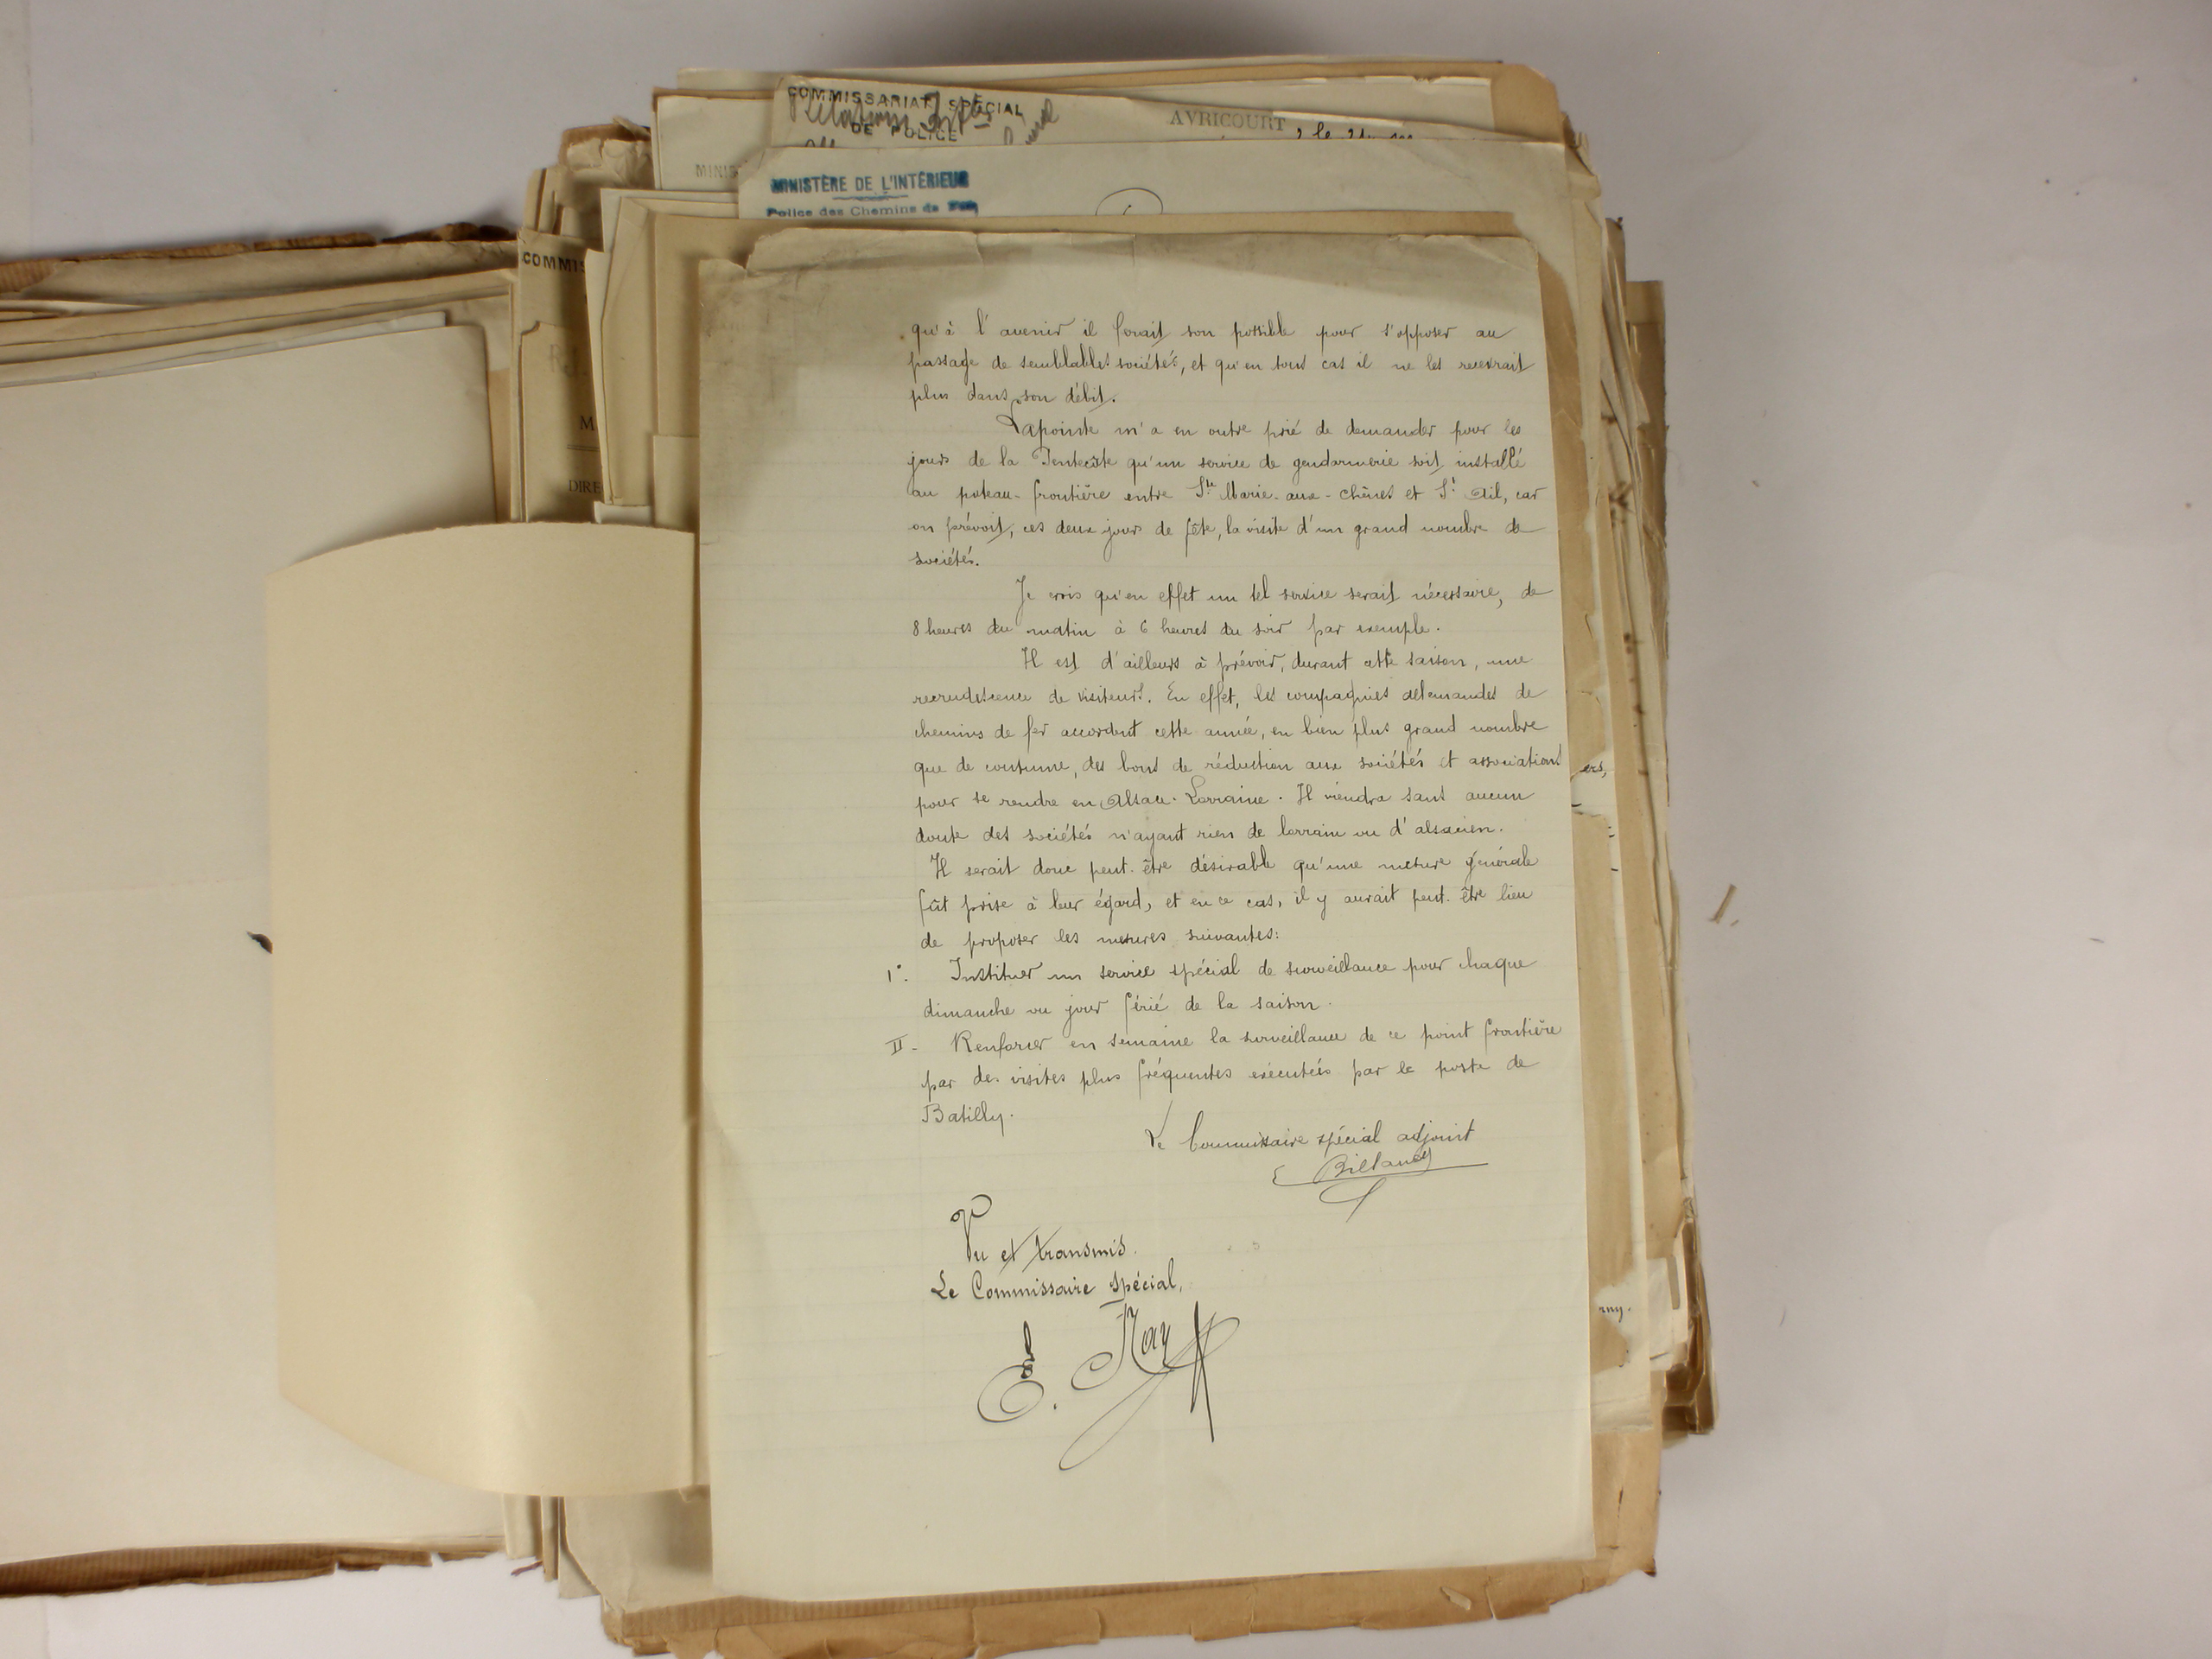 COMMISSARIAT SPÉCIAL
DE POLICE
Relations
AVRICOURT, le 21
MINIS
MINISTÈRE DE L'INTÉRIEUR
Police des Chemins de Fer
COMMIS
M
DIRE
qu'à l'avenir il ferait son possible pour s'opposer au
passage de semblables sociétés, et qu'en tous cas il ne les recevrait
plus dans son débit.
Lapointe m'a en outre prié de demander pour les
jours de la Pentecôte qu'un service de gendarmerie soit installé
au poteau-frontière entre Ste Marie-aux-chênes et St Ail, car
on prévoit, ces deux jours de fête, la visite d'un grand nombre de
sociétés.
Je crois qu'en effet un tel service serait nécessaire, de
8 heures du matin à 6 heures du soir par exemple.
Il est d'ailleurs à prévoir, durant cette saison, une
recrudescence de visiteurs. En effet, les compagnies allemandes de
chemins de fer accordent cette année, en bien plus grand nombre
que de coutume, des bons de réduction aux sociétés et associations
pour se rendre en Alsace-Lorraine. Il viendra sans aucun
doute des sociétés n'ayant rien de lorrain ou d'alsacien.
Il serait donc peut-être désirable qu'une mesure générale
fût prise à leur égard, et en ce cas, il y aurait peut-être lieu
de proposer les mesures suivantes:
1°. Instituer un service spécial de surveillance pour chaque
dimanche ou jour férié de la saison.
II- Renforcer en semaine la surveillance de ce point frontière
par des visites plus fréquentes exécutées par le poste de
Batilly.
Le Commissaire spécial adjoint
Vu et transmis.
Le Commissaire Spécial,
E. Ray
ers,
rny.